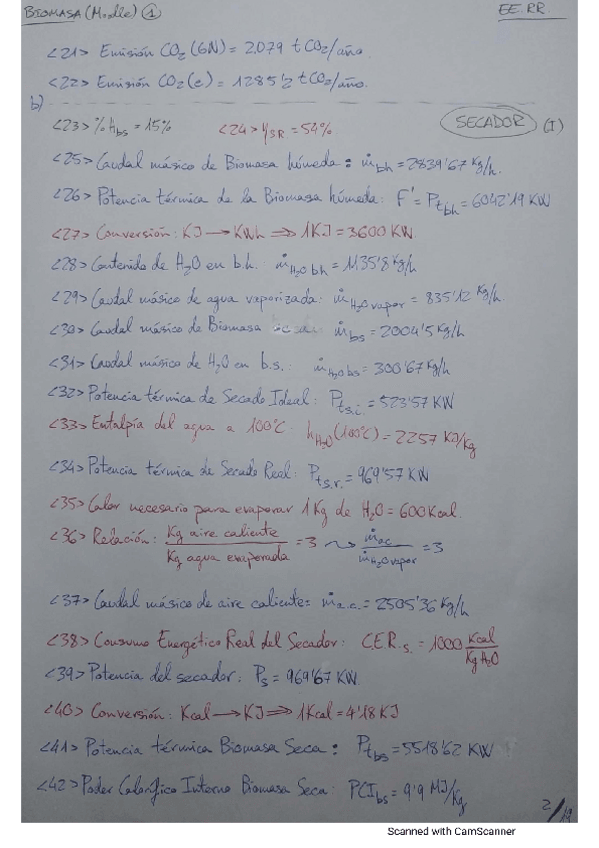 BIOMASA (Moodle) ① EE.RR
<21> Emisión CO₂ (GN) = 2.079 tCO₂/año.
<22> Emisión CO₂ (e) = 1285'2 tCO₂/año.
b)
<23> % H_bs = 15% <24> η_SR = 54% SECADOR (I)
<25> Caudal másico de Biomasa húmeda: ṁ_bh = 2839'67 Kg/h.
<26> Potencia térmica de la Biomasa húmeda: F' = Pt_bh = 6042'19 KW
<27> Conversión: KJ → KWh ⇒ 1KJ = 3600 KW.
<28> Contenido de H₂O en b.h.: ṁ_H₂O bh = 1135'8 Kg/h
<29> Caudal másico de agua vaporizada: ṁ_H₂O vapor = 835'12 Kg/h
<30> Caudal másico de Biomasa seca: ṁ_bs = 2004'5 Kg/h
<31> Caudal másico de H₂O en b.s.: ṁ_H₂O bs = 300'67 Kg/h
<32> Potencia térmica de Secado Ideal: Pt_s.i. = 523'57 KW
<33> Entalpía del agua a 100°C h_H₂O (100°C) = 2257 KJ/Kg
<34> Potencia térmica de Secado Real: Pt_s.r. = 969'57 KW
<35> Calor necesario para evaporar 1 Kg de H₂O = 600 Kcal.
<36> Relación: Kg aire caliente / Kg agua evaporada = 3 ⇝ ṁ_ac / ṁ_H₂O vapor = 3
<37> Caudal másico de aire caliente: ṁ_a.c. = 2505'36 Kg/h
<38> Consumo Energético Real del Secador: C.E.R._s. = 1000 Kcal/Kg H₂O
<39> Potencia del secador: P_s = 969'67 KW.
<40> Conversión: Kcal → KJ ⇒ 1 Kcal = 4'18 KJ
<41> Potencia térmica Biomasa Seca: Pt_bs = 5518'62 KW
<42> Poder Calorífico Interno Biomasa Seca: PCI_bs = 9'9 MJ/Kg
2/19
Scanned with CamScanner